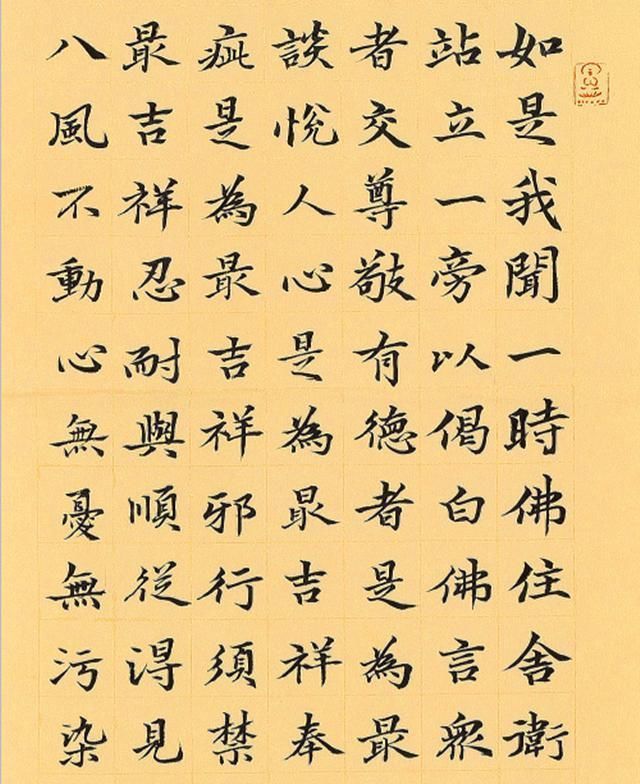 如是我聞一時佛住舍衛
站立一旁以偈白佛言眾
者交尊敬有德者是為最
談悅人心是為最吉祥奉
疵是為最吉祥邪行須禁
最吉祥忍耐與順從得見
八風不動心無憂無污染